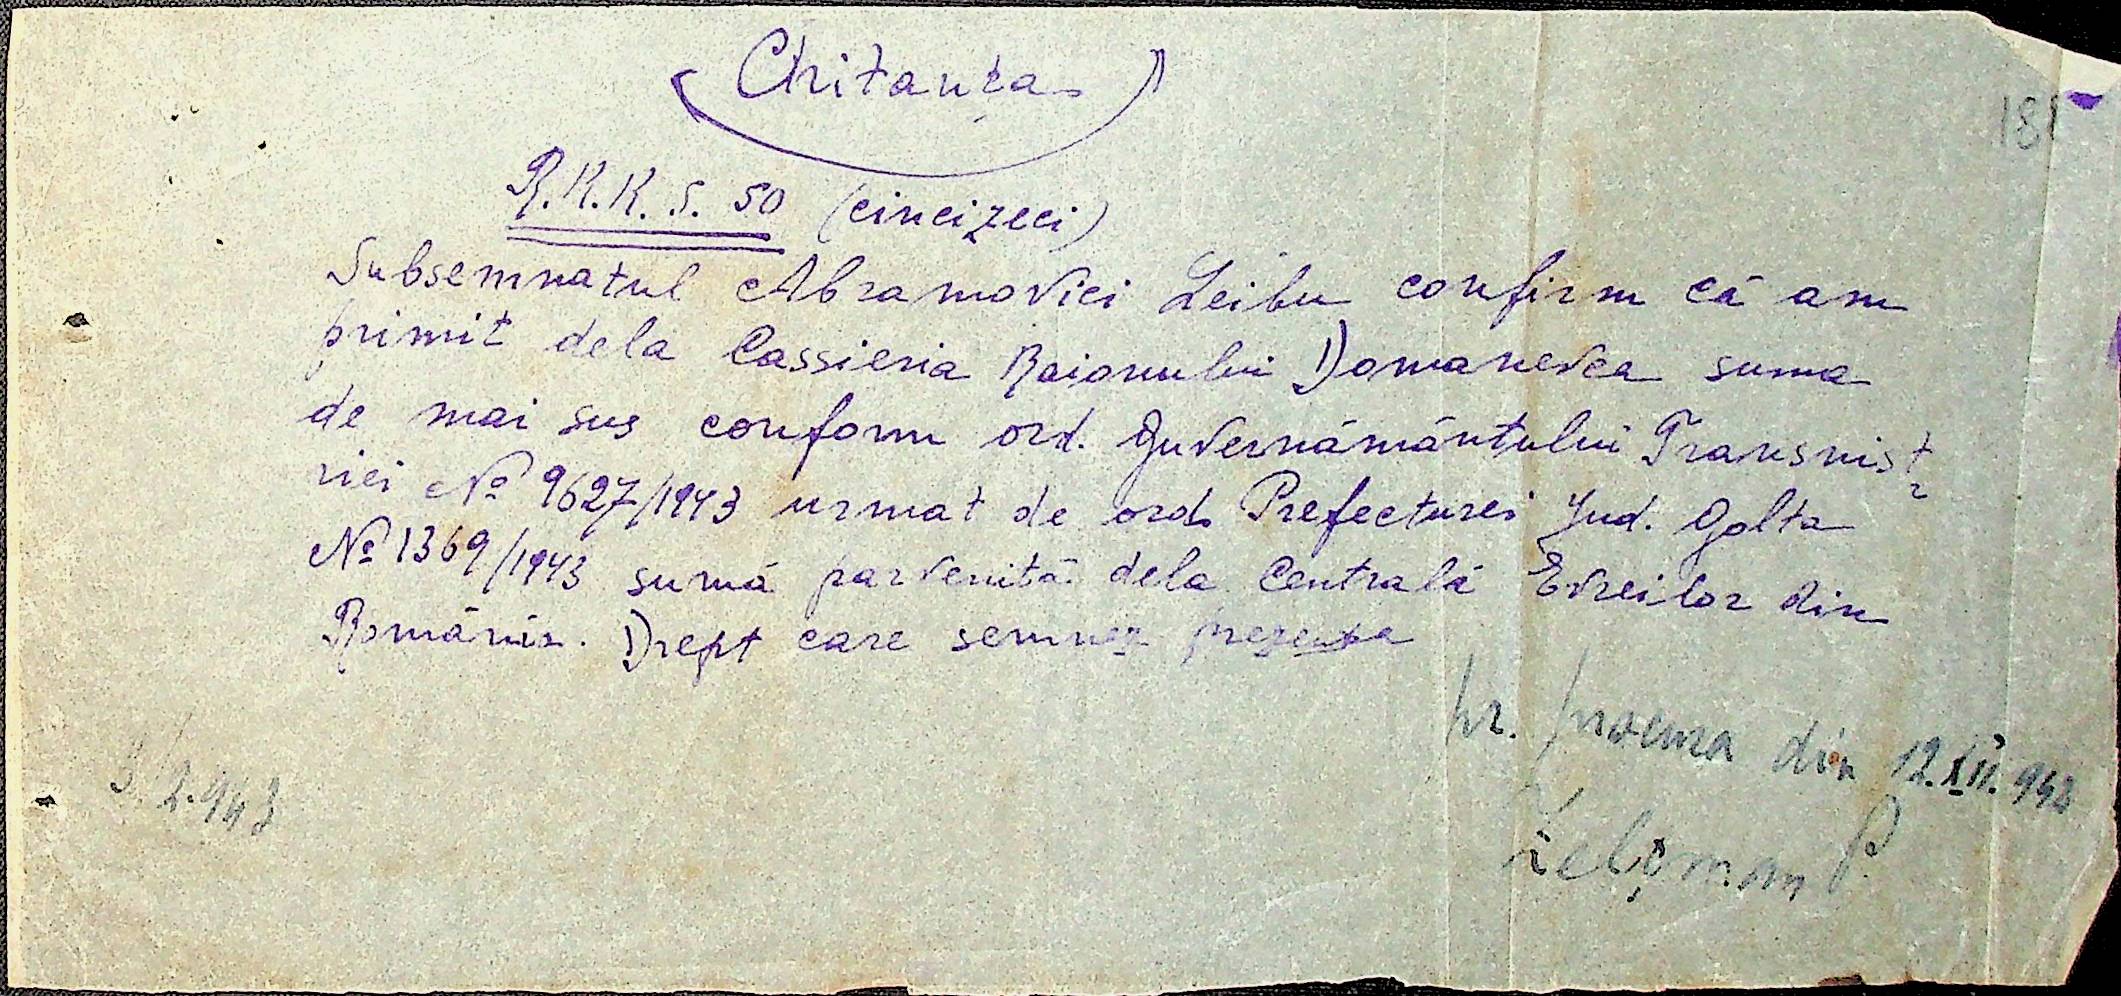 Chitanța
181
R.K.K.S. 50 (cincizeci)
Subsemnatul Abramovici Leibu confirm că am
primit dela Cassieria Raionului Domanevca suma
de mai sus conform ord. Guvernământului Transnist
riei № 9627/1943 urmat de ord. Prefecturei Jud. Golta
№ 1369/1943 sumă parvenită dela Centrala Evreilor din
România. Drept care semnez prezenta
pr. procura din 12.XII.942
3/2.943
Zelțman P.